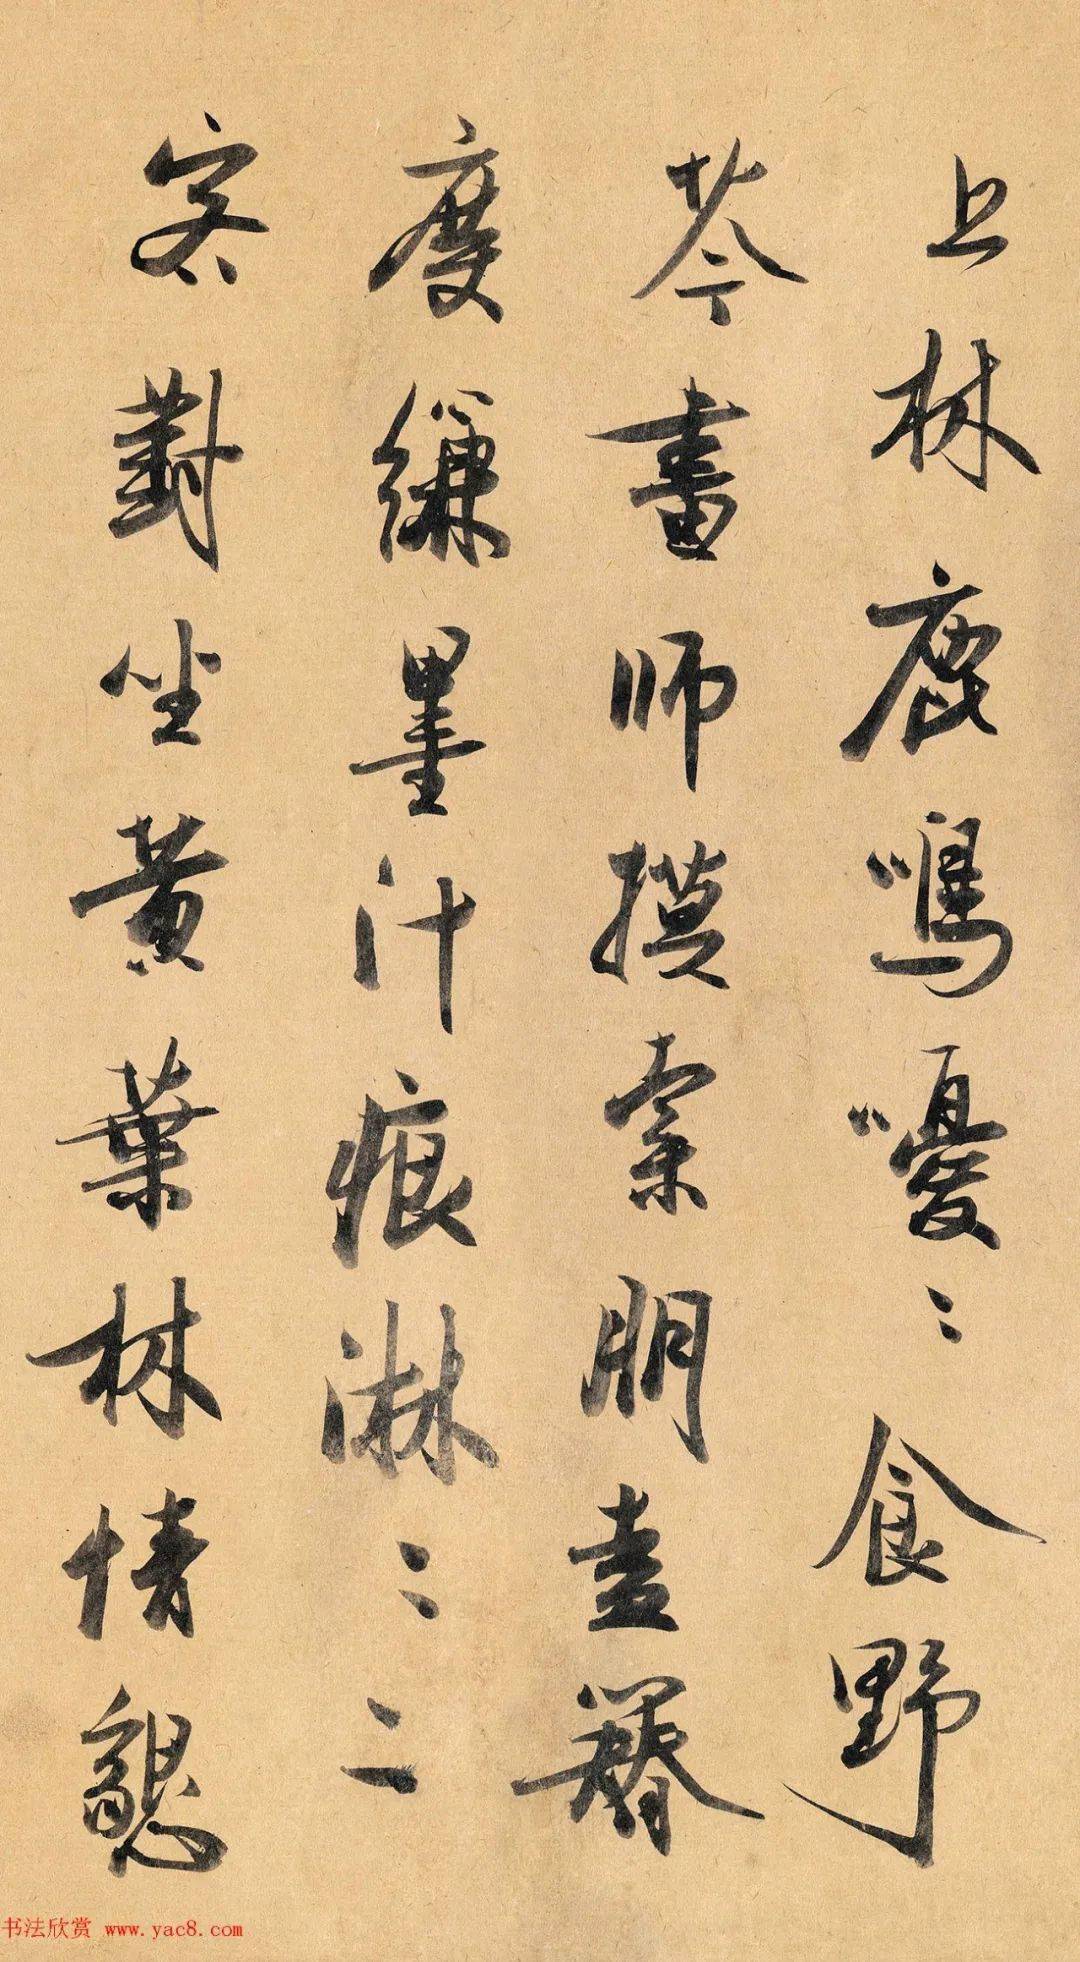 上林鹿鳴嚘〻食野
芩畫師摸索朋盍簪
度縑墨汁痕淋〻二
客對坐黄葉林情懇
书法欣赏 www.yac8.com